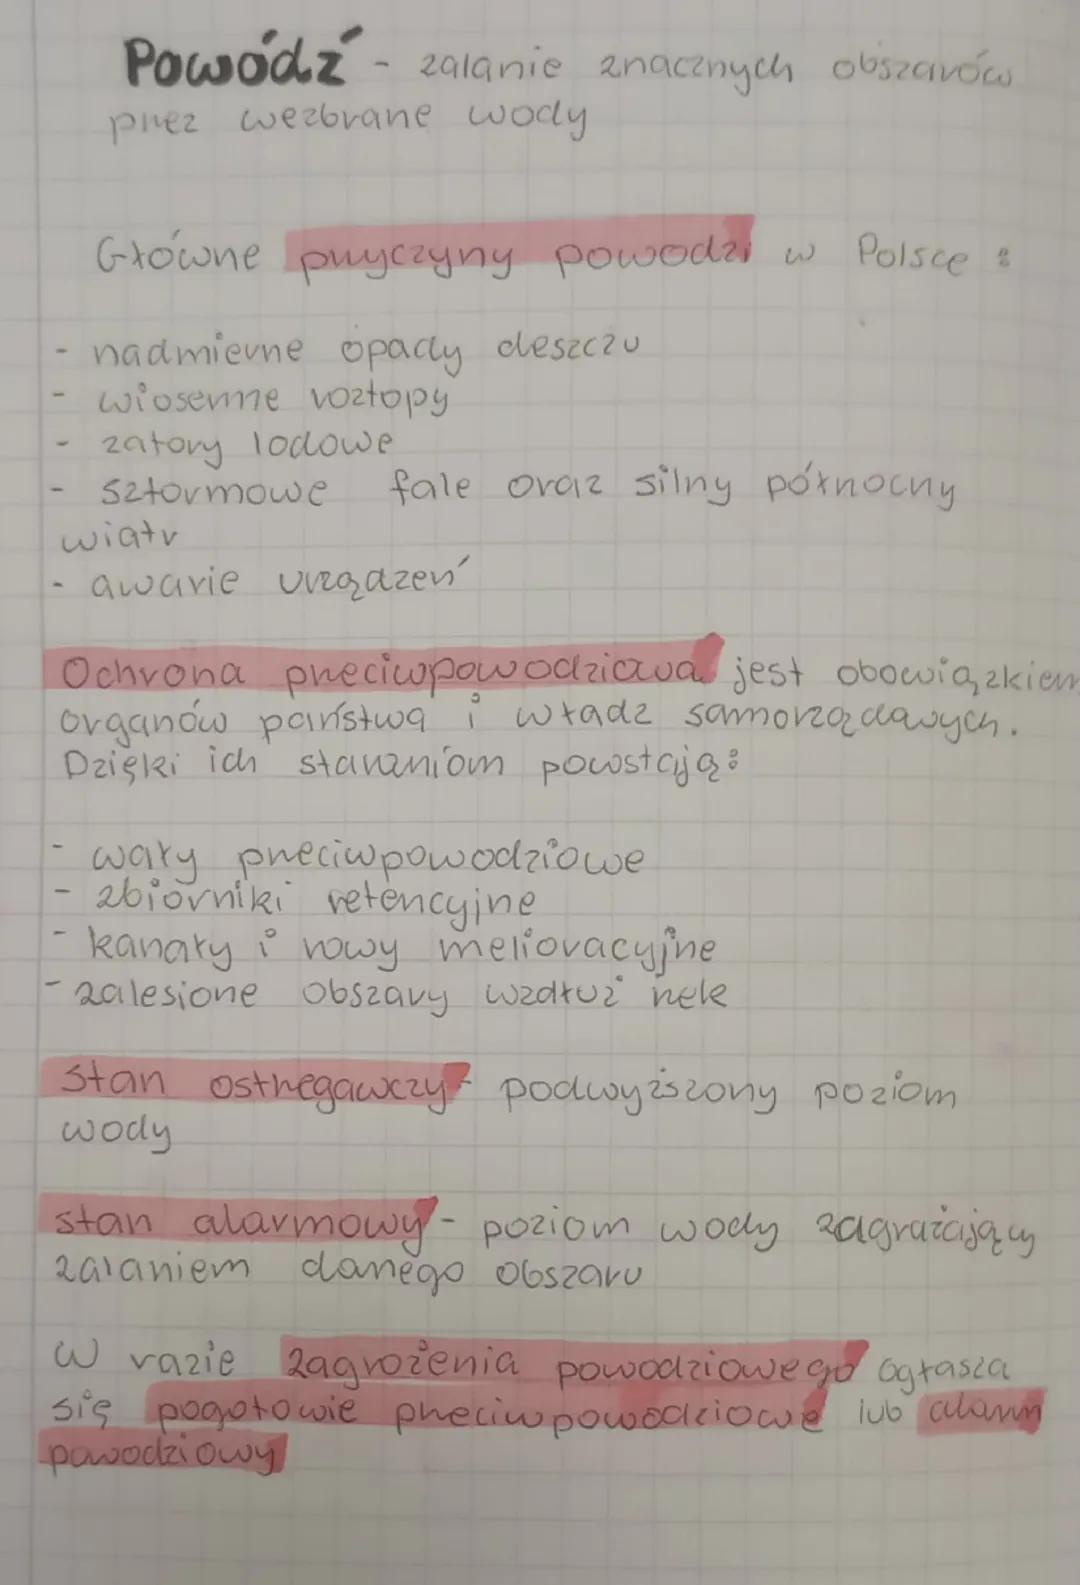 Powódź - zalanie znacznych obszarów
przez wezbrane wody
Główne przyczyny powodzi w Polsce :
- nadmierne opady deszczu
- wiosenne roztopy
- zatory lodowe
- sztormowe fale oraz silny północny
wiatr
- awarie urządzeń
Ochrona przeciwpowodziowa jest obowiązkiem
organów państwa i władz samorządowych.
Dzięki ich staraniom powstają:
- wały przeciwpowodziowe
- zbiorniki retencyjne
- kanały i rowy melioracyjne
- zalesione obszary wzdłuż rzek
Stan ostrzegawczy - podwyższony poziom
wody
stan alarmowy - poziom wody zagrażający
zalaniem danego obszaru
W razie zagrożenia powodziowego ogłasza
się pogotowie przeciwpowodziowe lub alarm
powodziowy